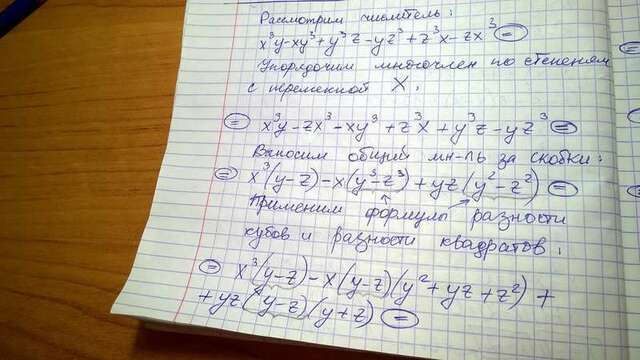 Рассмотрим числитель:
x³y-xy³+y³z-yz³+z³x-zx³ =
Упорядочим многочлен по степеням
с переменной X.
= x³y-zx³-xy³+z³x+y³z-yz³ =
Выносим общий мн-ль за скобки:
= x³(y-z)-x(y³-z³)+yz(y²-z²) =
Применим формулы разности
кубов и разности квадратов.
= x³(y-z)-x(y-z)(y²+yz+z²)+
+yz(y-z)(y+z) =